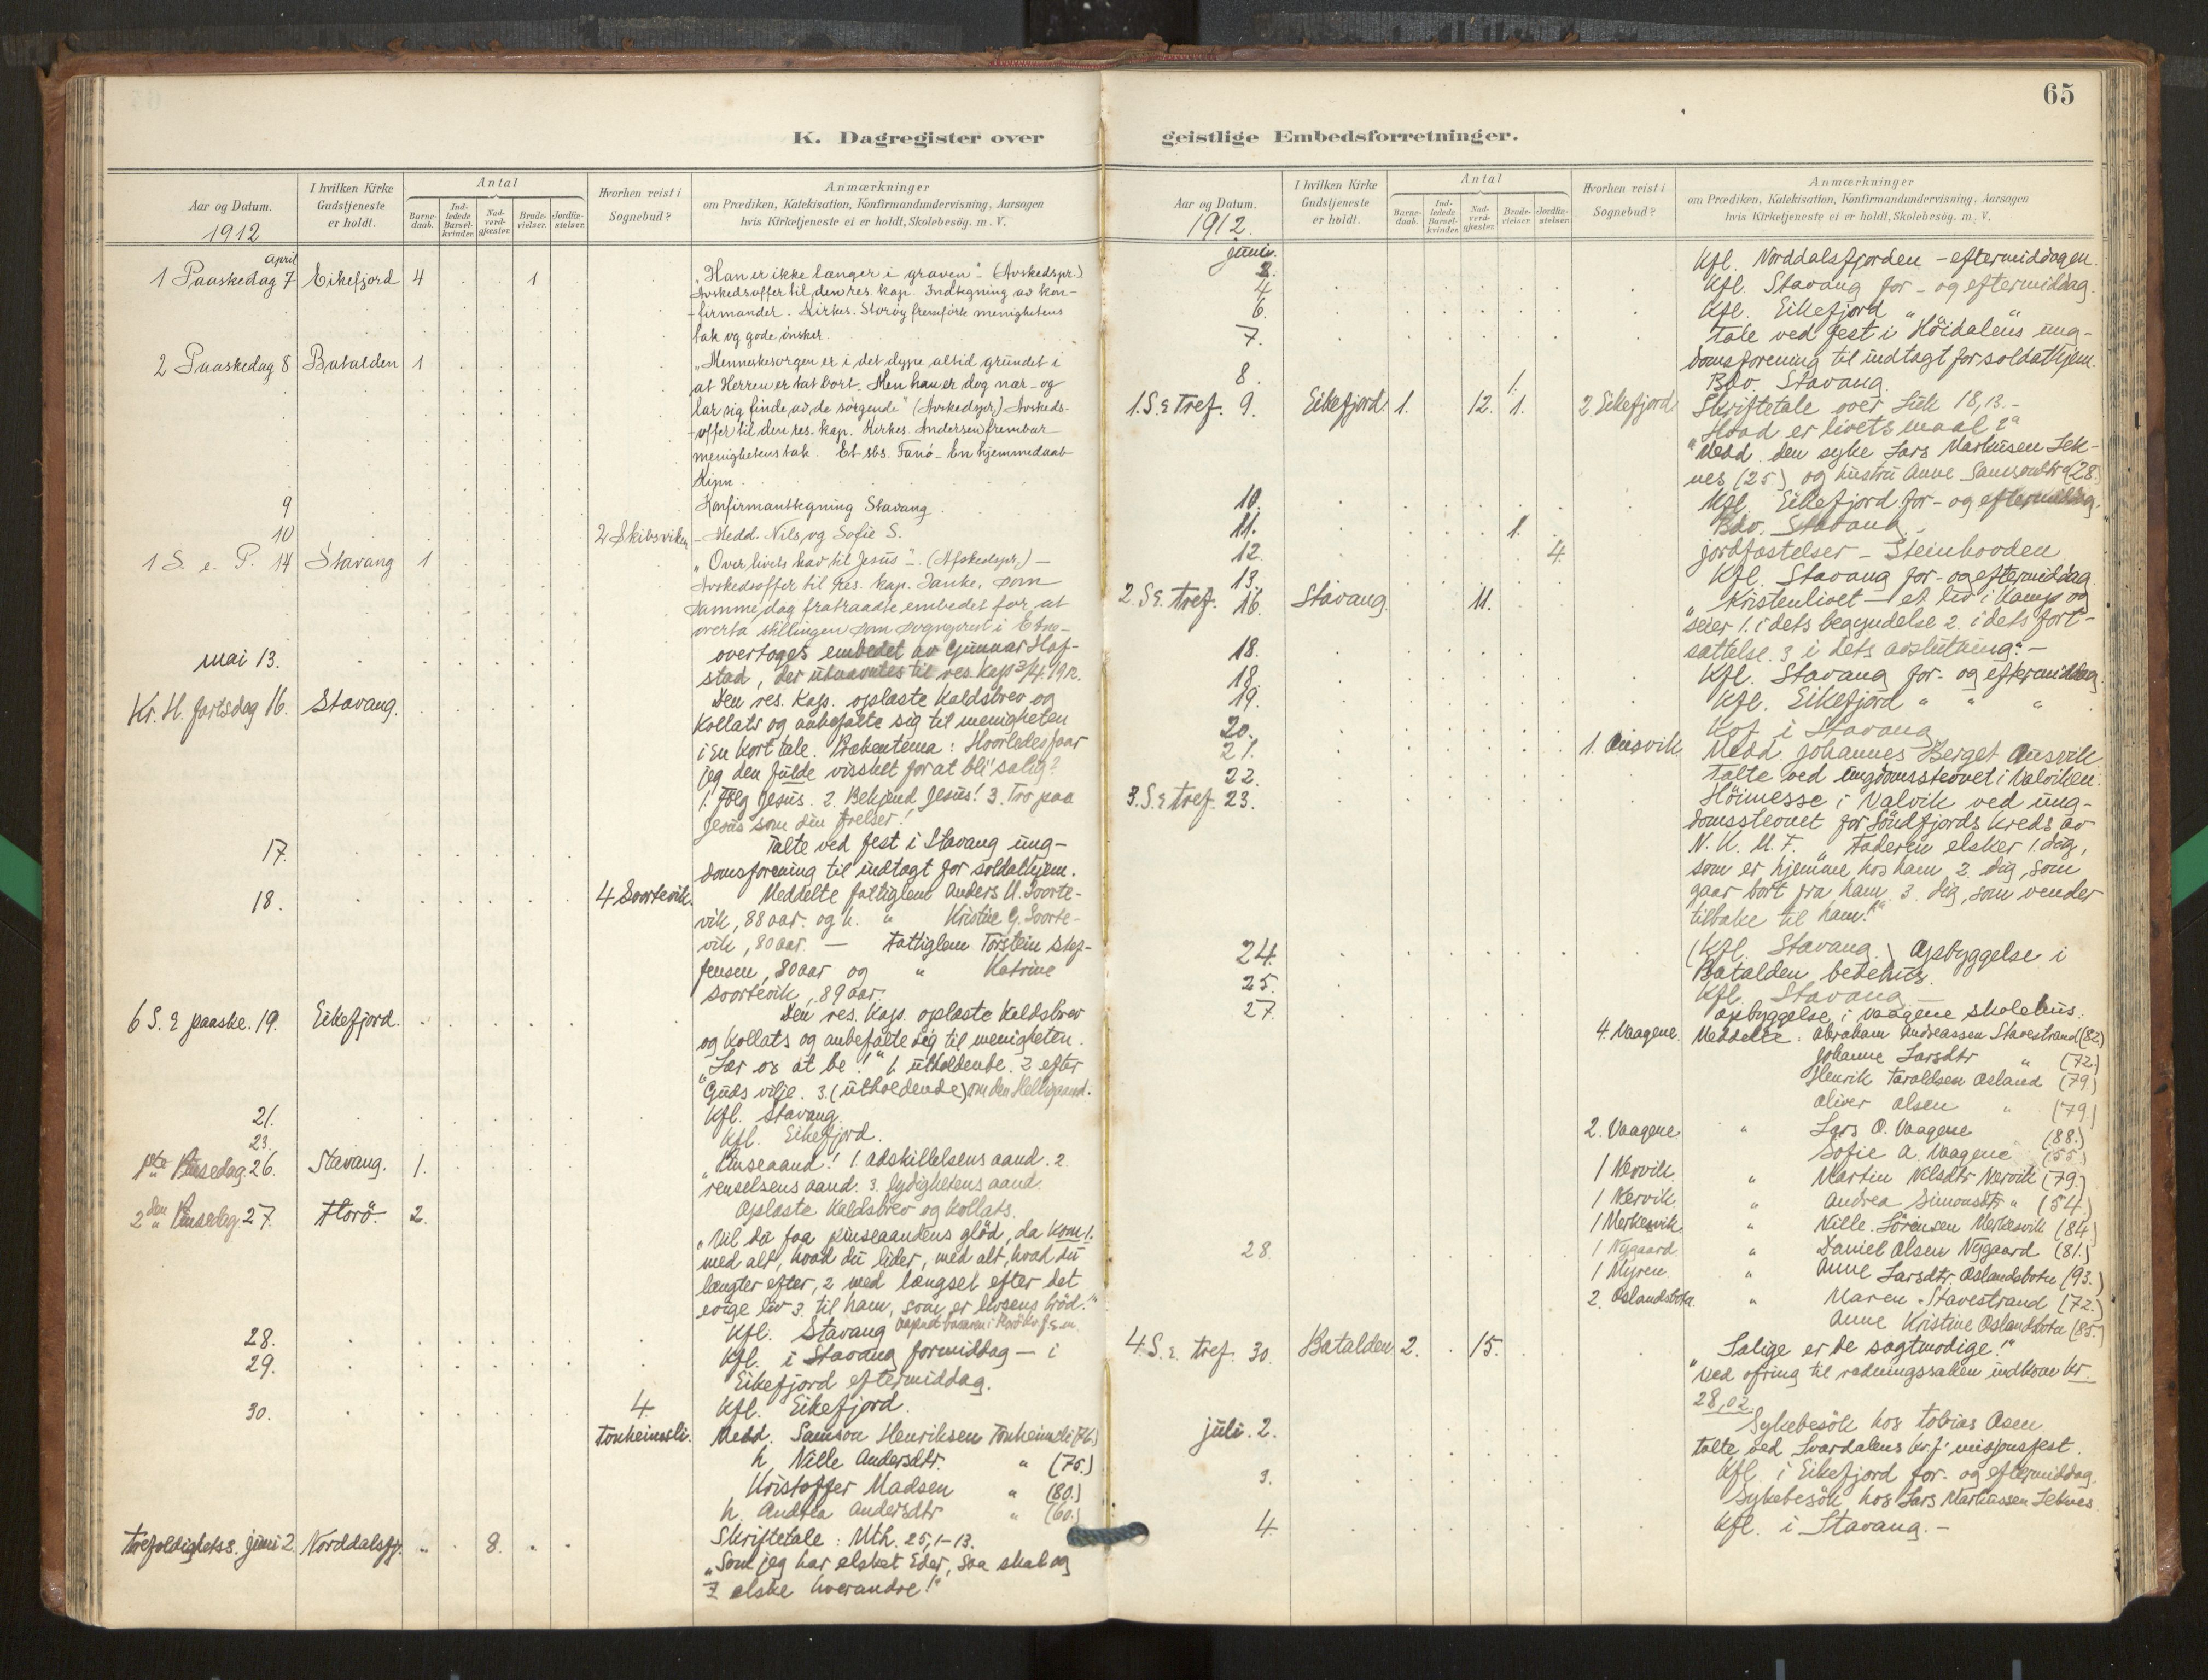 65
K. Dagregister over geistlige Embedsforretninger.
Aar og Datum.
1912
I hvilken Kirke Gudstjeneste er holdt.
Antal
Barne-daab.
Ind-ledede Barsel-kvinder.
Nad-verd-gjæster.
Brude-vielser.
Jordfæ-stelser.
Hvorhen reist i Sognebud?
Anmærkninger
om Prædiken, Katekisation, Konfirmandundervisning, Aarsagen
hvis Kirketjeneste ei er holdt, Skolebesög. m. V.
April
1 Paaskedag 7 Eikefjord 4 1 „Han er ikke længer i graven“ - (Avskedspr.)
Avskedsoffer til den res. kap. Indtegning av kon-
firmander. Kirkes. Storöy fremførte menighetens
tak og gode ønsker.
2 Paaskedag 8 Batalden 1 „Menneskesorgen er i det dype altid grundet i
at Herren er tat bort. Men han er dog nær - og
lar sig finde av de sørgende“ (Avskedspr.) Avskeds-
offer til den res. kap. Kirkes. Andersen frembar
menighetens tak. Et sbs. Fanö - En hjemmedaab
Kinn.
9 Konfirmanttegning Stavang
10 2 Skibsviken - Medd. Nils og Sofie S.
1 S. e. P. 14 Stavang 1 „Over livets hav til Jesus“ - (Afskedspr.) -
Avskedsoffer til res. kap. Janke, som
samme dag fratraadte embedet for at
overta stillingen som sogneprest i Etne -
mai 13. overtoges embedet av Gunnar Hof-
stad, der utnævntes til res. kap 3/4 1912.
Kr. H. fartsdag 16. Stavang. Den res. kap. oplæste kaldsbrev og
kollats og anbefalte sig til menigheten
i en kort tale. Prækentema: Hvorledes faar
jeg den fulde visshet for at bli salig?
1. Følg Jesus. 2. Bekjend Jesus! 3. Tro paa
Jesus som din frelser!
17. Talte ved fest i Stavang ung-
domsforening til indtægt for soldathjem.
18. 4 Svortevik. Meddelte fattiglem Anders M. Svorte-
vik, 88 aar. og h. „ Kristine G. Svorte-
vik, 80 aar. — Fattiglem Torstein Stef-
fensen, 80 aar og „ Katrine
Svortevik, 89 aar.
6 S. e paaske. 19. Eikefjord. Den res. kap. oplæste kaldsbrev
og kollats og anbefalte sig til menigheten.
„Lær os at be!“ 1. utholdende. 2 efter
Guds vilje. 3. (utholdende) om den Helligaand.
21. Kfl. Stavang
23. Kfl. Eikefjord.
1ste Pinsedag 26. Stavang. 1. „Pinseaand! 1. adskillelsens aand. 2.
renselsens aand. 3. lydighetens aand.
2den Pinsedag. 27. Florö. 2. Oplæste kaldsbrev og kollats.
„Vil du faa pinseaandens glöd, da kom 1.
med alt, hvad du lider, med alt, hvad du
længter efter, 2 med længsel efter det
evige liv 3. til ham, som er livsens bröd.“
28. Kfl. Stavang
29. Kfl. i Stavang formiddag — i
Eikefjord eftermiddag.
30. 4 Kfl. Eikefjord.
Tonheimsli. Medd. Samson Henriksen Tonheimsli (76.)
h. Nille Andersdtr. „ (75.)
Kristoffer Madsen „ (80.)
h. Andrea Andersdtr „ (60.)
Trefoldighetss. juni 2 Norddalsfj. 8. Skriftetale: Mth. 25, 1-13.
„Som jeg har elsket Eder, saa skal og
I elske hverandre!“
Aar og Datum.
1912.
I hvilken Kirke Gudstjeneste er holdt.
Antal
Barne-daab.
Ind-ledede Barsel-kvinder.
Nad-verd-gjæster.
Brude-vielser.
Jordfæ-stelser.
Hvorhen reist i Sognebud?
Anmærkninger
om Prædiken, Katekisation, Konfirmandundervisning, Aarsagen
hvis Kirketjeneste ei er holdt, Skolebesög. m. V.
juni.
2. Kfl. Norddalsfjorden - eftermiddagen.
4 Kfl. Stavang for - og eftermiddag.
6. Kfl. Eikefjord „ „
7. Tale ved fest i Höidalens ung-
domsforening til indtægt for soldathjem.
8. 1. Bdv. Stavang.
1. S. e Tref. 9. Eikefjord. 1. 12. 1. 2 Eikefjord. Skriftetale over Luk 18,13. -
„Hvad er livets maal?“
Medd. den syke Lars Markusen Lek-
nes (25) og hustru Anne Samsonsdtr (28.)
10. Kfl. Eikefjord for - og eftermiddag.
11. 1. Bdv. Stavang.
12. 4. jordfæstelser - Steinhovden
13. Kfl. Stavang for - og eftermiddag.
2. S e. Tref. 16. Stavang. 11. „Kristenlivet — et liv i kamp og
seier 1. i dets begyndelse 2. i dets fort-
sættelse. 3 i dets avslutning.“ -
18. Kfl. Stavang for - og eftermiddag.
18. Kfl. Eikefjord „ „ „
19. Kof. i Stavang
20. 1. Ausvik. Medd Johannes Berget Ausvik.
21.
22. Talte ved ungdomsstevnet i Valviken.
3. S. e Tref. 23. Höimesse i Valvik ved ung-
domsstevnet for Söndfjords kreds av
N. K. U. F. „Faderen elsker 1. dig,
som er hjemme hos ham 2. dig, som
gaar bort fra ham. 3. dig, som vender
tilbake til ham!“
24. (Kfl. Stavang.) Opbyggelse i
Batalden bedehus.
25. Kfl. Stavang —
27. opbyggelse i Vaagene skolehus.
4. Vaagene. Meddelte: Abraham Andreassen Stavestrand (82.)
Johanne Larsdtr „ (72.)
Henrik Taraldsen Osland (79)
Oliver Olsen „ (79.)
2. Vaagene. „ Lars O. Vaagene (88.)
Sofie A. Vaagene (55.)
1 Nervik. „ Martin Nilsdtr Nervik (79.)
1 Nervik. „ Andrea Simonsdtr „ (54.)
1 Merkesvik. „ Nille Sörensen Merkesvik (84.)
28. 1 Nygaard. „ Daniel Olsen Nygaard (81.)
1 Myren. „ Anne Larsdtr. Oslandsbotn (93.)
2. Oslandsbotn. „ Maren Stavestrand (72.)
Anne Kristine Oslandsbotn (85.)
4. S. e. Tref. 30. Batalden 2. 15. „Salige er de sagtmodige!“
Ved ofring til redningssaken indkom kr.
28,02.
juli. 2. Sykebesök hos Tobias Osen.
Talte ved Svardalens kr. f. misjonsfest.
3. Kfl. i Eikefjord for- og eftermiddag.
Sykebesök hos Lars Markussen Leknes.
4. Kfl. i Stavang. -